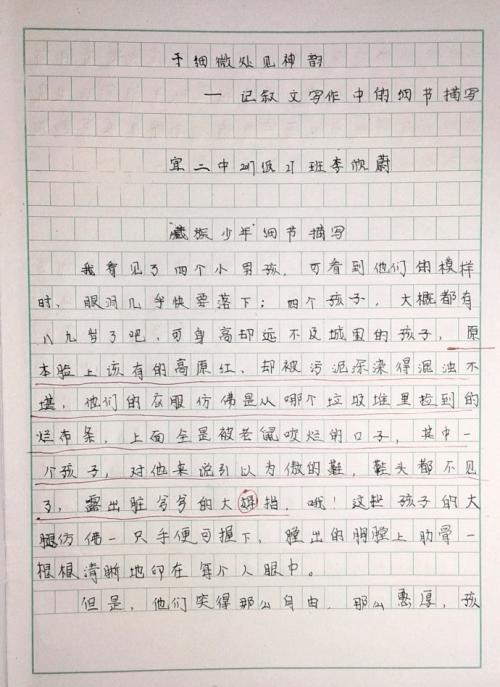 于细微处见神韵
— 记叙文写作中的细节描写
宜二中2017级27班李欣蔚
藏族少年细节描写
我看见了四个小男孩，可看到他们的模样
时，眼泪几乎快要落下；四个孩子，大概都有
八九岁了吧，可身高却远不及城里的孩子，原
本脸上该有的高原红，却被污泥深染得混浊不
堪，他们的衣服仿佛是从哪个垃圾堆里捡到的
烂布条，上面全是被老鼠咬烂的口子，其中一
个孩子，对他来说引以为傲的鞋，鞋头都不见
了，露出脏兮兮的大拇指，哦！这些孩子的大
腿仿佛一只手便可握下，膛出的胸膛上肋骨一
根根清晰地印在每个人眼中。
但是，他们笑得那么自由，那么憨厚，孩